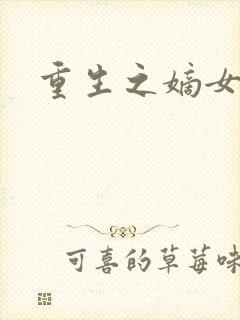 重生之嫡女
可喜的草莓味